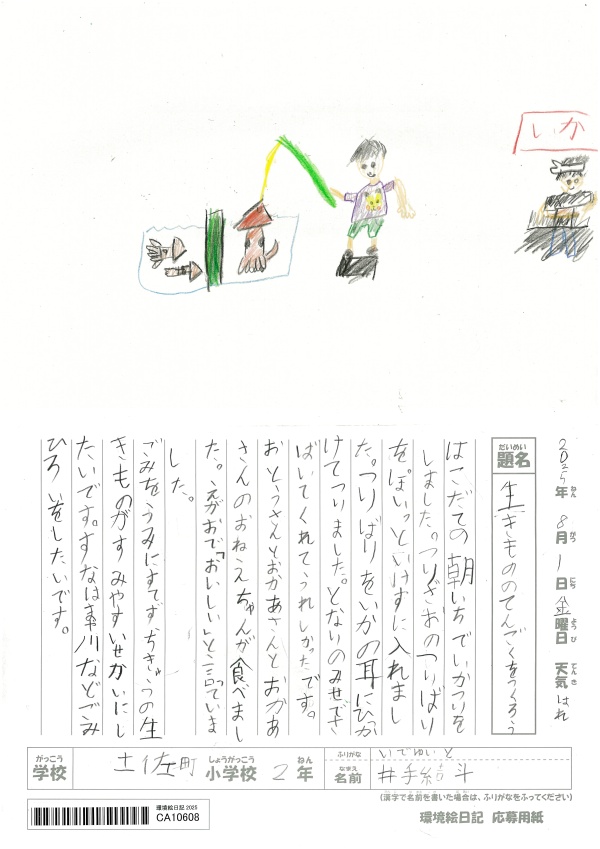 いか
2025年 8月 1日 金曜日 天気 はれ
ねん がつ にち ようび てんき
だいめい
題名
生きもののてんごくをつくろう
はこだての朝いちでいかつりを
しました。つりざおのつりばり
をぽいっといけすに入れまし
た。つりばりをいかの耳にひっか
けてつりました。となりのみせでさ
ばいてくれてうれしかったです。
おとうさんとおかあさんとおかあ
さんのおねえちゃんが食べまし
た。えがおで「おいしい」と言っていま
した。
ごみをうみにすてずちきゅうの生
きものがすみやすいせかいにし
たいです。すなはま川などでごみ
ひろいをしたいです。
がっこう
学校
土佐町
しょうがっこう
小学校
2
ねん
年
ふりがな
いでゆいと
なまえ
名前
井手結斗
(漢字で名前を書いた場合は、ふりがなをふってください)
環境絵日記 2025
CA10608
環境絵日記 応募用紙